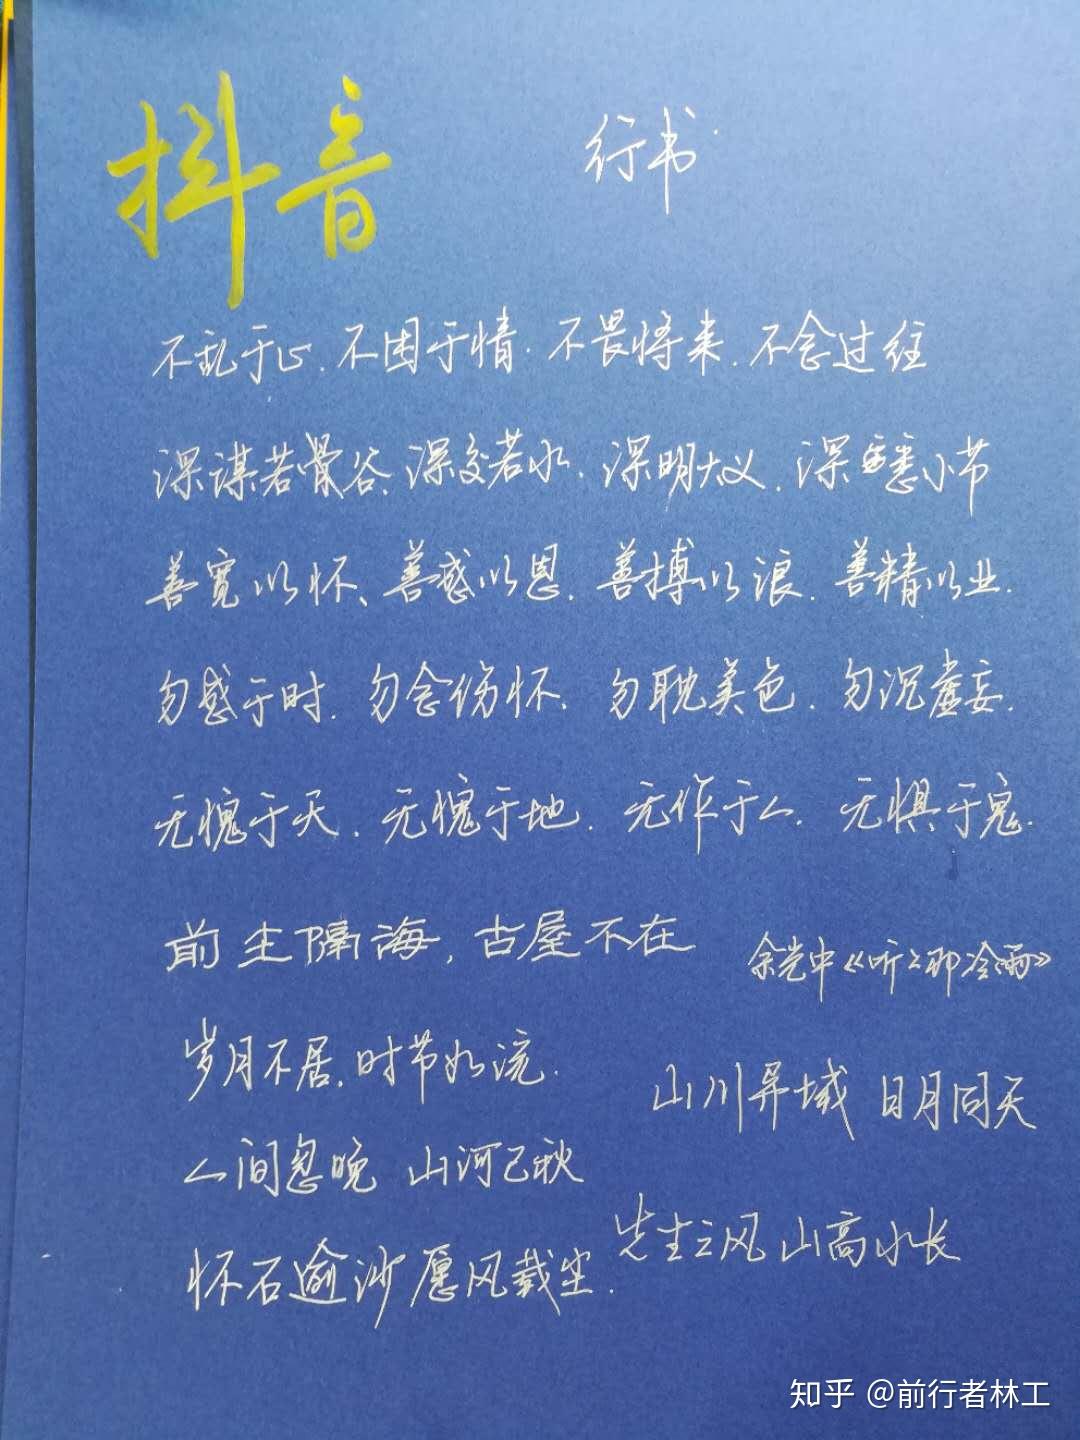 抖音
行书
不乱于心.不困于情.不畏将来.不念过往
深谋若谷、深交若水.深明大义.深悉小节
善宽以怀、善感以恩.善搏以浪.善精以业.
勿感于时.勿念伤怀、勿耽美色.勿沉虚妄.
无愧于天.无愧于地.无作于人.无惧于鬼.
前生隔海,古屋不在
余光中《听听那冷雨》
岁月不居.时节如流.
山川异域 日月同天
人间忽晚 山河已秋
先生之风 山高水长
怀石逾沙 愿风载尘.
知乎 @前行者林工